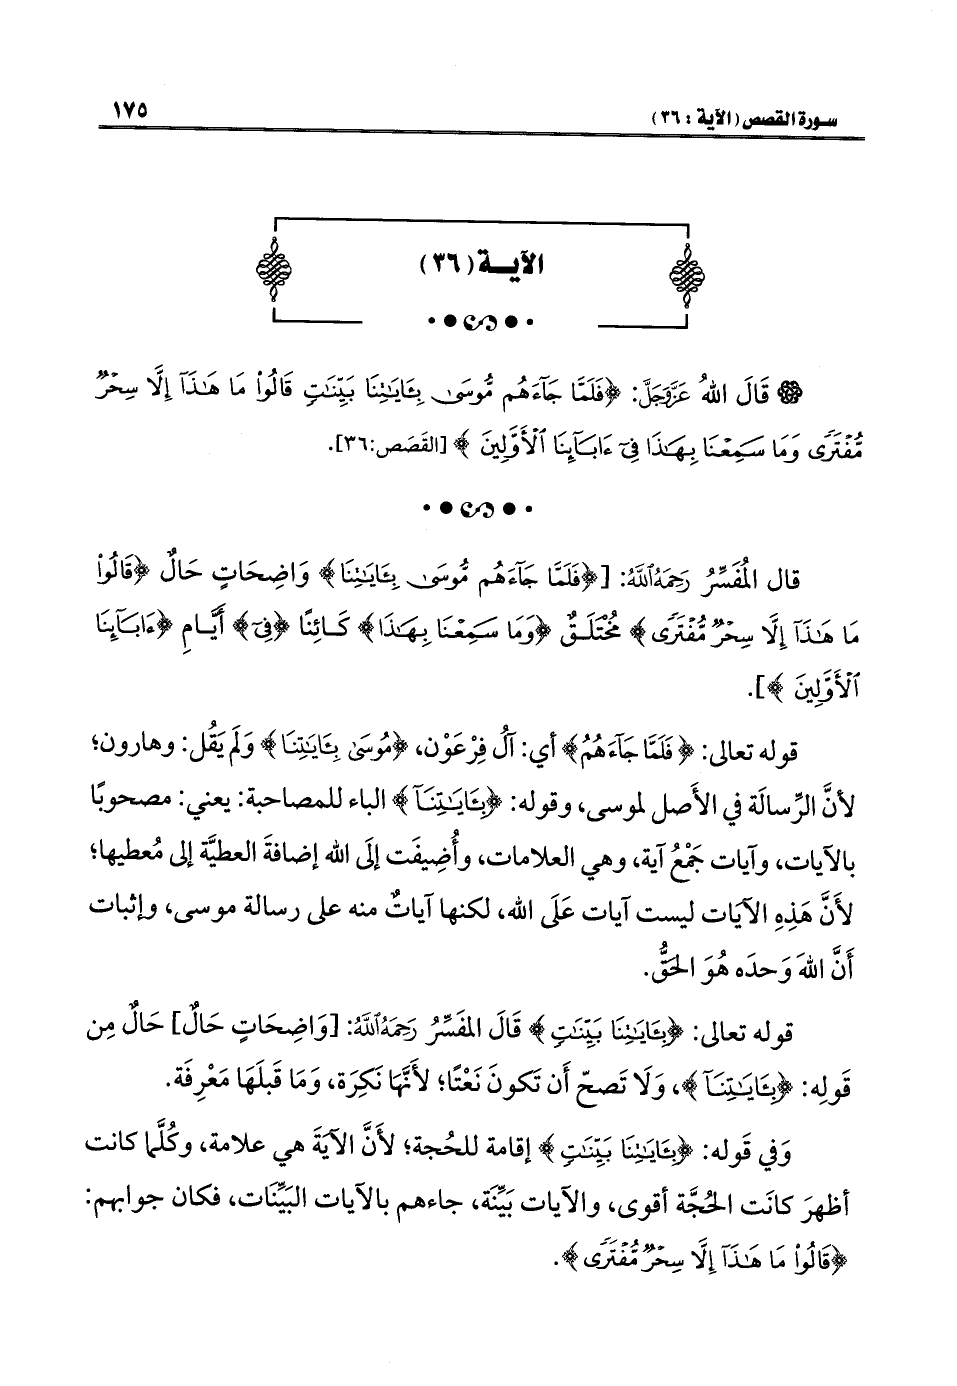 سورة القصص (الآية : ٣٦)
١٧٥
الآيــة (٣٦)
قَالَ اللهُ عَزَّوَجَلَّ: ﴿فَلَمَّا جَآءَهُم مُّوسَىٰ بِـَٔايَـٰتِنَا بَيِّنَـٰتٍ قَالُوا۟ مَا هَـٰذَآ إِلَّا سِحْرٌ
مُّفْتَرًى وَمَا سَمِعْنَا بِهَـٰذَا فِىٓ ءَابَآئِنَا ٱلْأَوَّلِينَ ﴾ [القَصَص:٣٦].
قال المُفَسِّرُ رَحِمَهُ اللَّهُ: [﴿فَلَمَّا جَآءَهُم مُّوسَىٰ بِـَٔايَـٰتِنَا﴾ وَاضِحَاتٍ حَالٌ ﴿قَالُوا۟
مَا هَـٰذَآ إِلَّا سِحْرٌ مُّفْتَرًى﴾ مُخْتَلَـقٌ ﴿وَمَا سَمِعْنَا بِهَـٰذَا﴾ كَـائِنًا ﴿فِىٓ﴾ أَيَّـامِ ﴿ءَابَآئِنَا
ٱلْأَوَّلِينَ ﴾].
قوله تعالى: ﴿ فَلَمَّا جَآءَهُمْ﴾ أي: آلُ فِرْعَوْن، ﴿مُوسَىٰ بِـَٔايَـٰتِنَا﴾ وَلَم يَقُل: وهارون؛
لأنَّ الرِّسالَة في الأَصل لموسى، وقوله: ﴿بِـَٔايَـٰتِنَآ ﴾ الباء للمصاحبة: يعني: مصحوبًا
بالآيات، وآيات جَمْعُ آية، وهي العلامات، وأُضِيفَت إلَى الله إضافةَ العطيَّة إلى مُعطيها؛
لأَنَّ هَذِهِ الآيَات ليست آيات عَلَى الله، لكنها آياتٌ منه على رسالة موسى، وإثبات
أنَّ اللهَ وَحدَه هُوَ الحَقُّ.
قوله تعالى: ﴿بِـَٔايَـٰتِنَا بَيِّنَـٰتٍ ﴾ قَالَ المفَسِّرُ رَحِمَهُ اللَّهُ: [وَاضِحَاتٍ حَالٌ] حَالٌ مِن
قَولِه: ﴿بِـَٔايَـٰتِنَآ ﴾، وَلَا تَصحّ أَن تَكونَ نَعْتًا؛ لأنَّهَا نَكِرَة، وَمَا قَبلَهَا مَعْرِفَة.
وَفي قَوله: ﴿بِـَٔايَـٰتِنَا بَيِّنَـٰتٍ ﴾ إقامة للحُجة؛ لأَنَّ الآيَةَ هي علامة، وكُلَّما كانت
أظهرَ كانَت الحُجَّة أقوى، والآيات بَيِّنَة، جاءهم بالآيات البَيِّنَات، فكان جوابهم:
﴿قَالُوا۟ مَا هَـٰذَآ إِلَّا سِحْرٌ مُّفْتَرًى ﴾.